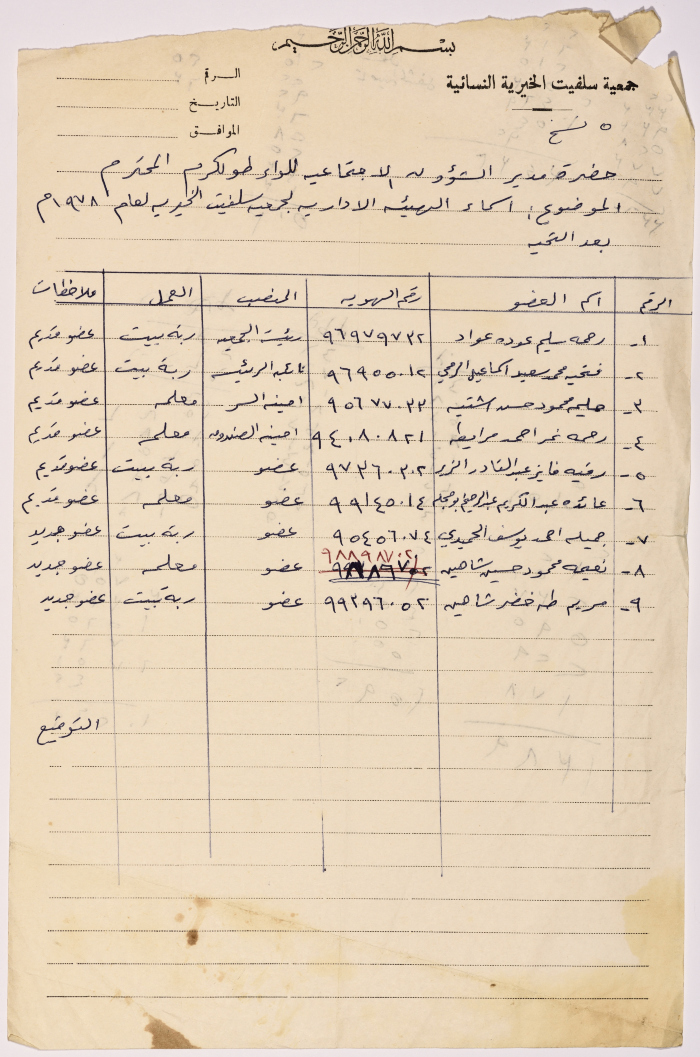 بسم الله الرحمن الرحيم
جمعية سلفيت الخيرية النسائية
الرقم
التاريخ
الموافق
٥ نسخ
حضرة مدير الشؤون الاجتماعيه للواء طولكرم المحترم
الموضوع: اسماء الهيئه الاداريه لجمعيه سلفيت الخيريه لعام ١٩٧٨م
بعد التحيه
الرقم اسم العضو رقم الهويه المنصب العمل ملاحظات
١- رحمه سليم عوده عواد ٩٦٩٧٩٧٣٢ رئيسة الجمعيه ربة بيت عضو قديم
٢- فتحيه محمد سعيد اسماعيل ٩٦٩٥٥٠١٢ نائبه الرئيسه ربة بيت عضو قديم
٣- حليمه محمود حسن اشتيه ٩٥٦٧٧٠٣٣ امينه السر معلمه عضو قديم
٤- رحمه نمر احمد مرايطه ٩٤٠٨٠٨٢١ امينه الصندوق معلمه عضو قديم
٥- رقيه فايز عبد القادر الزير ٩٧٣٦٠٣٠٢ عضو ربة بيت عضو قديم
٦- عائده عبد الكريم عبد الرحيم ٩٩١٤٥٠١٤ عضو معلمه عضو قديم
٧- جميله احمد يوسف الحميدي ٩٥٤٥٦٠٧٤ عضو ربة بيت عضو جديد
٩٨٨٩٨٧٠٢
٨- نعيمه محمود حسين شاهين عضو معلمه عضو جديد
٩- مريم طه خضر شاهين ٩٩٢٩٦٠٥٢ عضو ربة بيت عضو جديد
التوقيع